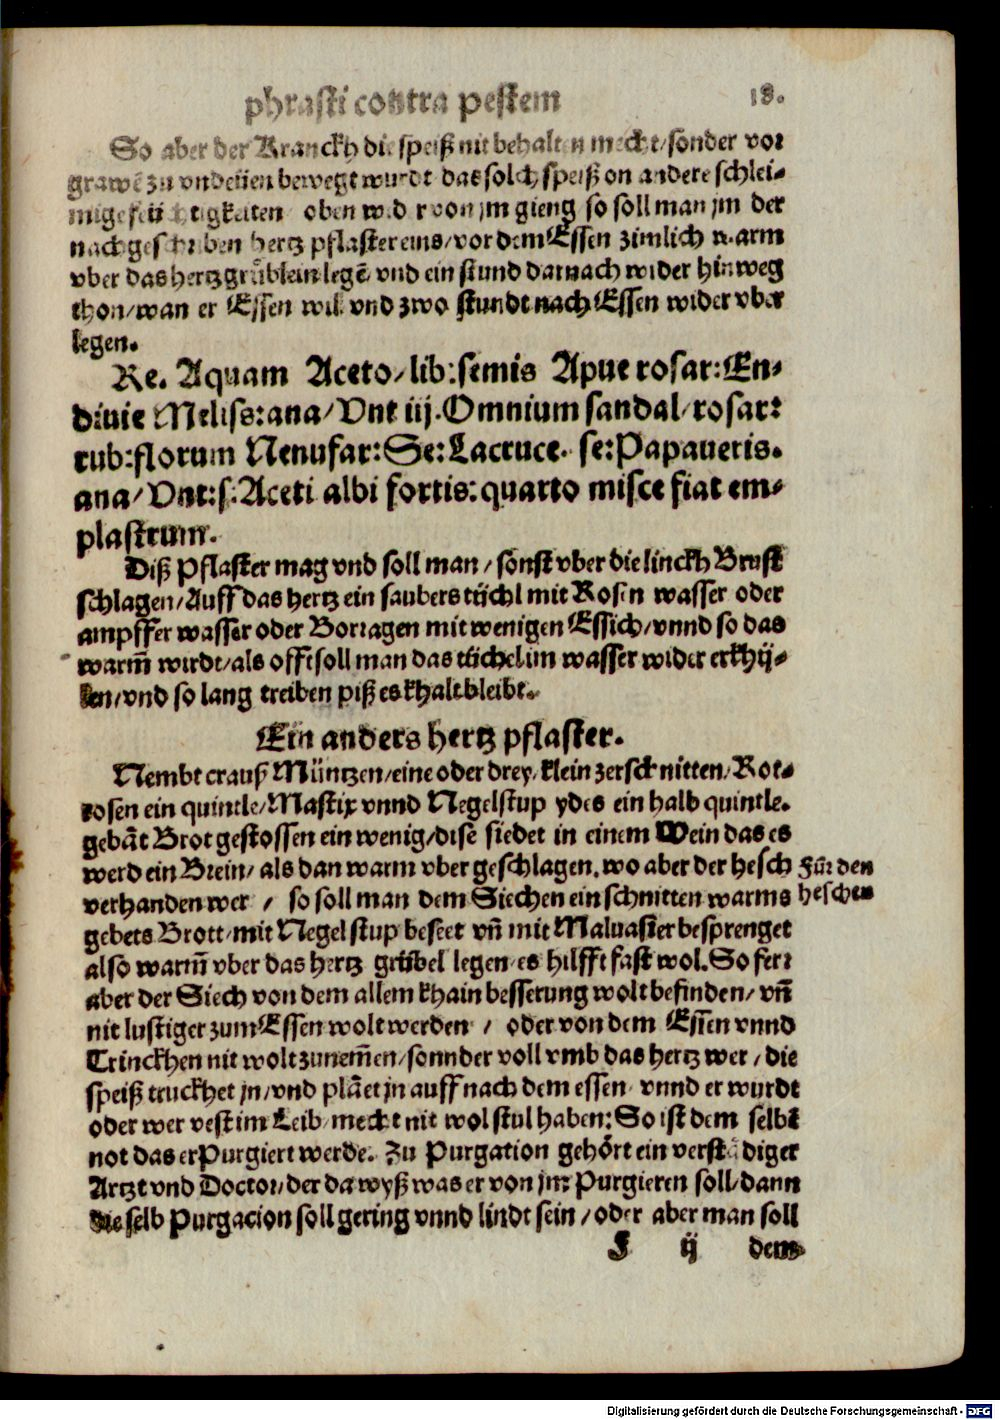 phrasti contra pestem 18.
So aber der Kranckh die speiß nit behalten mecht/sonder vor
grawē zu vndeüen bewegt wurdt das solch speiß on andere schlei-
mige oben wider von jm gieng so soll man jm der
nachgeschriben hertz pflaster eins/vor dem Essen zimlich warm
vber das hertzgrüblein legē vnd ein stund darnach wider hinweg
thon/wan er Essen wil vnd zwo stundt nach Essen wider vber
legen.
Re. Aquam Aceto/lib:semis Apue rosar:En-
diuie Meliss:ana/Vnt iij.Omnium sandal/rosar:
rub:florum Nenufar:Se:Lacruce. se:Papaueris.
ana/Vnt:s:Aceti albi fortis:quarto misce fiat em-
plastrum.
Diß Pflaster mag vnd soll man/sonst vber die linckh Brust
schlagen/Auff das hertz ein saubers tüchl mit Rosen wasser oder
ampffer wasser oder Borragen mit wenigen Essich/vnnd so das
warm̄ wirdt/als offt soll man das tüchel im wasser wider erkhü-
len/vnd so lang treiben piß es khalt bleibt.
Ein anders hertz pflaster.
Nembt crauß Müntzen/eine oder drey/klein zerschnitten/Rot-
rosen ein quintle/Mastix vnnd Negelstup ydes ein halb quintle.
gebāt Brot gestossen ein wenig/dise siedet in einem Wein das es
werd ein Brein/als dan warm vber geschlagen.wo aber der hesch Für den
verhanden wer/so soll man dem Siechen ein schnitten warms heschen
gebets Brott/mit Negel stup beseet vn̄ mit Maluasier besprenget
also warm̄ vber das hertz grübel legen/es hilfft fast wol.So ferr
aber der Siech von dem allem khain besserung wolt befinden/vn̄
nit lustiger zum Essen wolt werden/oder von dem Essen vnnd
Trinckhen nit wolt zunem̄en/sonnder voll vmb das hertz wer/die
speiß truckhet jn/vnd plāet jn auff nach dem essen/vnnd er wurdt
oder wer vest im Leib/mecht nit wol stul haben:So ist dem selbē
not das er Purgiert werde. Zu Purgation gehört ein verstādiger
Artzt vnd Doctor/der da wyß was er von jm Purgieren soll/dann
die selb Purgacion soll gering vnnd lindt sein/oder aber man soll
F ij dem
Digitalisierung gefördert durch die Deutsche Forschungsgemeinschaft - DFG